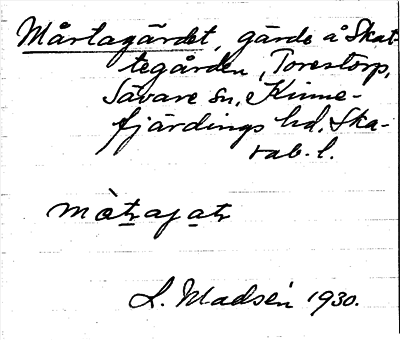 Mårtagärdet, gärde å Skat-
tegården, Torestorp,
Sävare sn, Kinne-
fjärdings hd. Ska-
rab. l.
L. Madsén 1930.